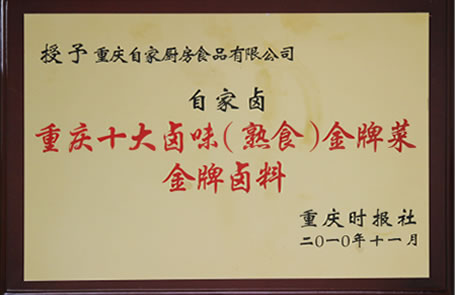 授予 重庆自家厨房食品有限公司
自家卤
重庆十大卤味(熟食)金牌菜
金牌卤料
重庆时报社
二〇一〇年十一月